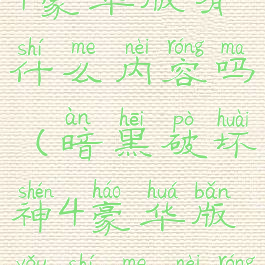 豪华版有
shí me nèi róng ma
什么内容吗
àn hēi pò huài
（暗黑破坏
shén háo huá bǎn
神4豪华版
yǒu shí me nèi róng